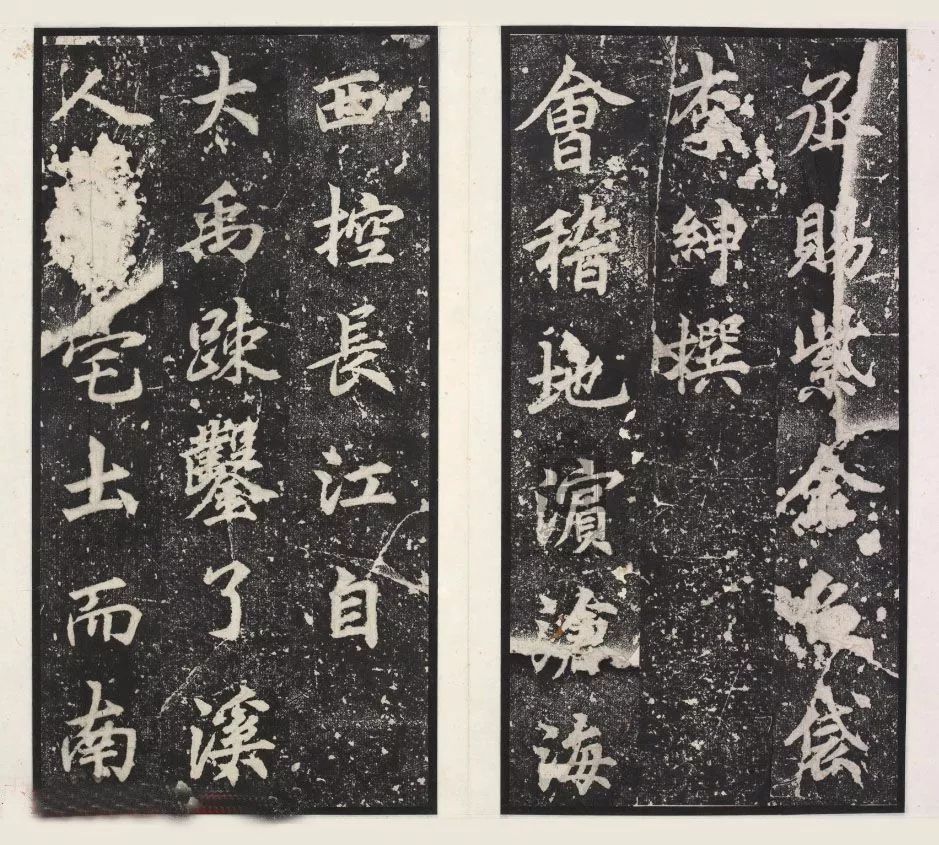 丞賜紫金魚袋
李紳撰
會稽地濵滄海
西控長江自
大禹踈鑿了溪
人宅土而南